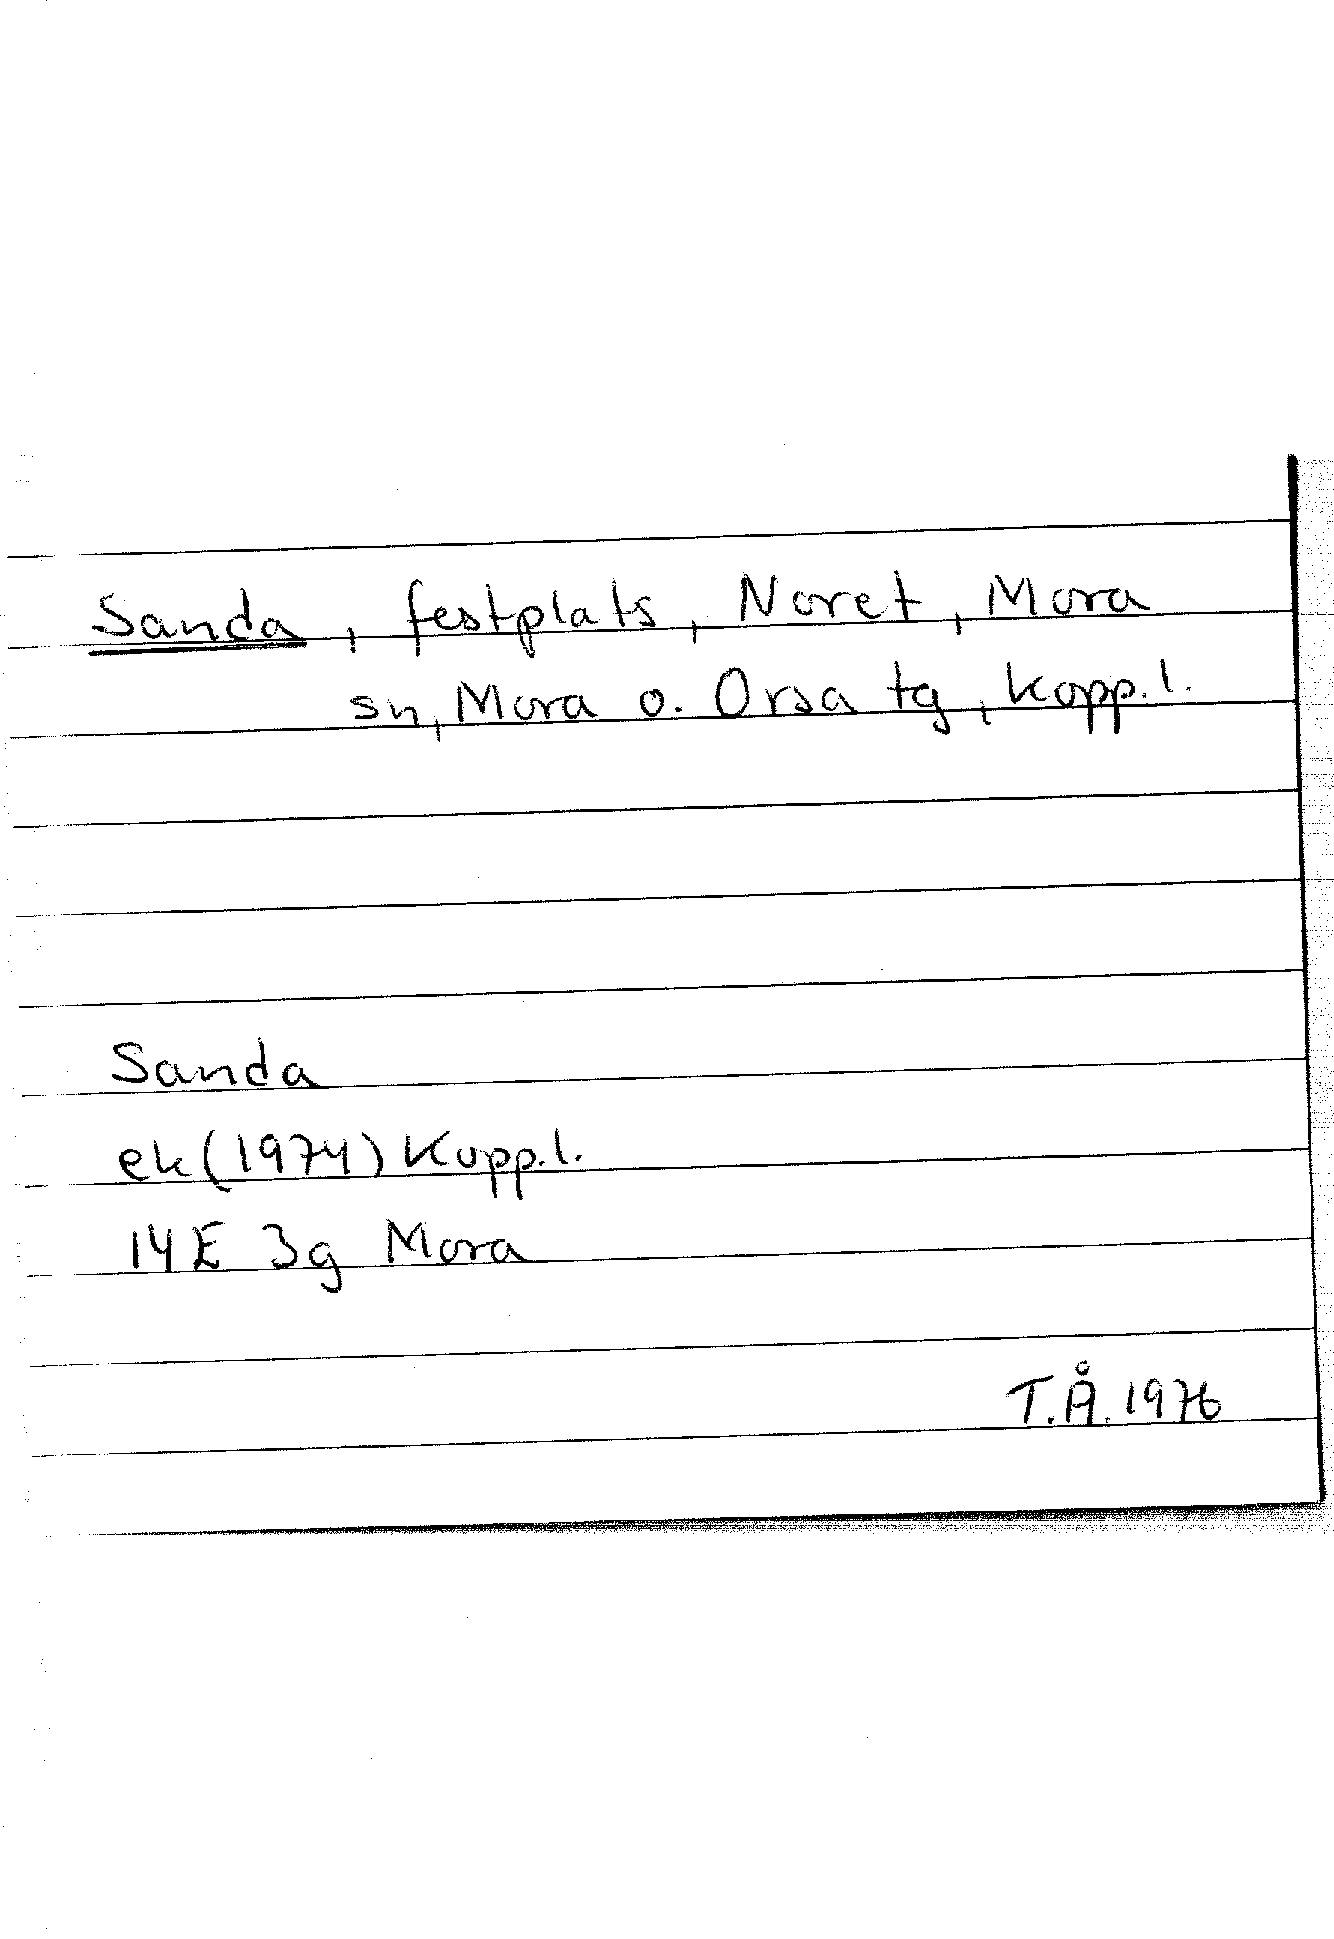 Sanda, festplats, Noret, Mora
sn, Mora o. Orsa tg, Kopp.l.
Sanda
ek(1974) Kopp.l.
14E 3g Mora
T.Å. 1976